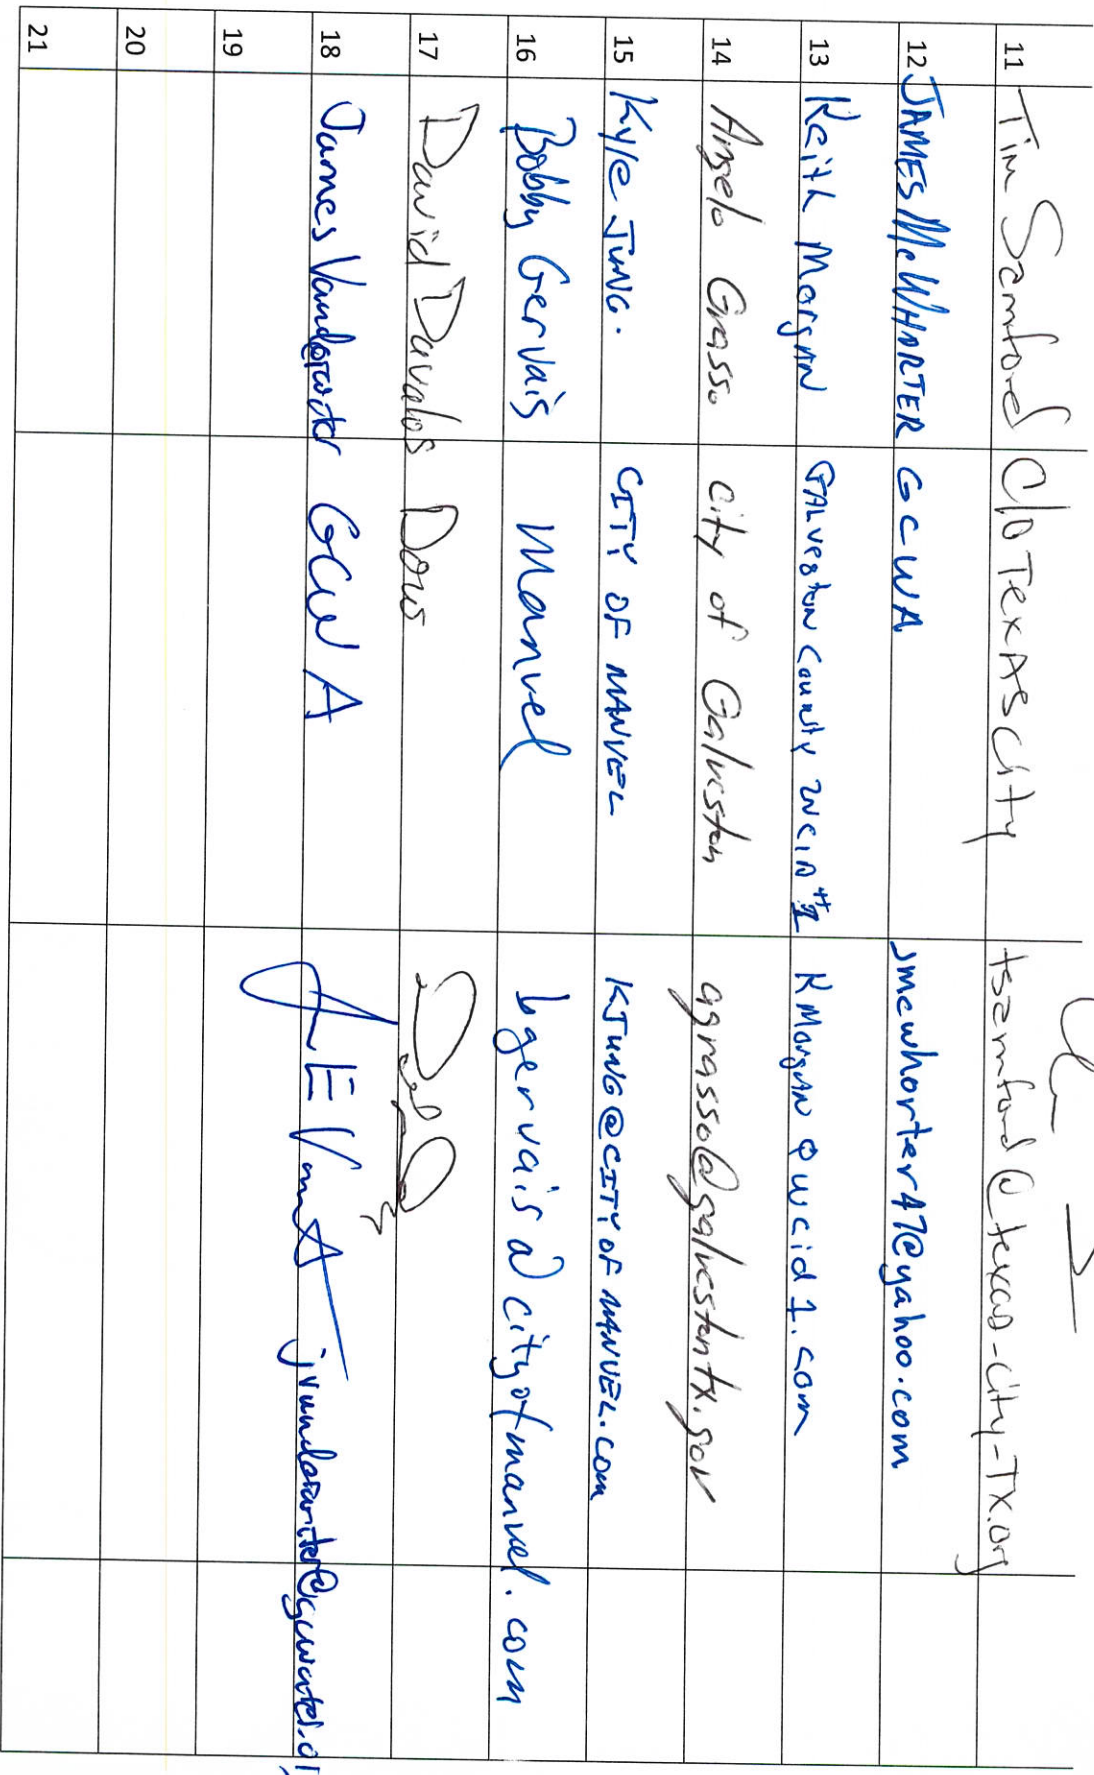 11 Tim Samford C/O Texas City tsamford@texas-city-TX.org
12 JAMES McWHORTER GCWA jmcwhorter47@yahoo.com
13 Keith Morgan GALVESTON County WCID #1 KMorgan@wcid1.com
14 Angelo Grasso City of Galveston agrasso@galvestontx.gov
15 Kyle JUNG. CITY OF MANVEL KJUNG@CITYOFMANVEL.com
16 Bobby Gervais Manvel bgervais@cityofmanvel.com
17 David Davalos Dow
18 James Vanderwater GCWA
19
20
21